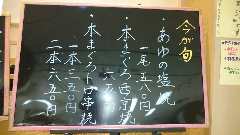 今が旬
・あゆの塩焼
一尾五八〇円
・本まぐろ西京焼
・本まぐろトロ串焼
一本三五〇円
二本六五〇円